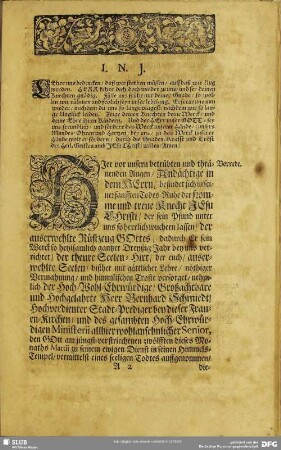 I. N. J.
Lehre uns bedencken / daß wir sterben müssen / auf daß wir klug
werden. HERR kehre dich doch wieder zu uns und sey deinen
Knechten gnädig. Fülle uns frühe mit deiner Gnade / so wol-
len wir rühmen und frölich seyn unser lebenlang. Erfreue uns nun
wieder / nachdem du uns so lange plagest / nachdem wir so lan-
ge Unglück leiden. Zeige deinen Knechten deine Werck / und
deine Ehre ihren Kindern. Und der HErr unser GOTT sey
uns freundlich / und fördere das Werck unserer Hände
Hier vor unsern betrübten und thrä- Vorrede.
nenden Augen / Andächtige in
dem HErrn / befindet sich in sei-
ner sanfften Todes-Ruhe der from-
me und treue Knecht JEsu
Christi / der sein Pfund unter
uns so herrlich wuchern lassen / der
auserwehlte Rüstzeug GOttes / dadurch Er sein
Werck so heylsamlich gantzer Dreyßig Jahr bey uns ver-
richtet / der theure Seelen-Hirt / der euch / auser-
wehlte Seelen / bißher mit göttlicher Lehre / nöthiger
Vermahnung / und himmlischen Trost versorget / nehm-
lich der Hoch-Wohl-Ehrwürdige / Großachtbare
und Hochgelahrte Herr Bernhard Schmiedt /
Hochverdienter Stadt-Prediger bey dieser Frauen-
Kirchen / und des gesambten Hoch-Ehrwür-
digen Ministerii allhier wohlansehnlicher Senior,
den GOtt am jüngst-verstrichenen zwölfften dieses Mo-
naths Martii zu seinem ewigen Dienst in seinen Himmels-
Tempel / vermittelst eines seeligen Todtes auffgenommen /
A 2 die-
SLUB
DFG